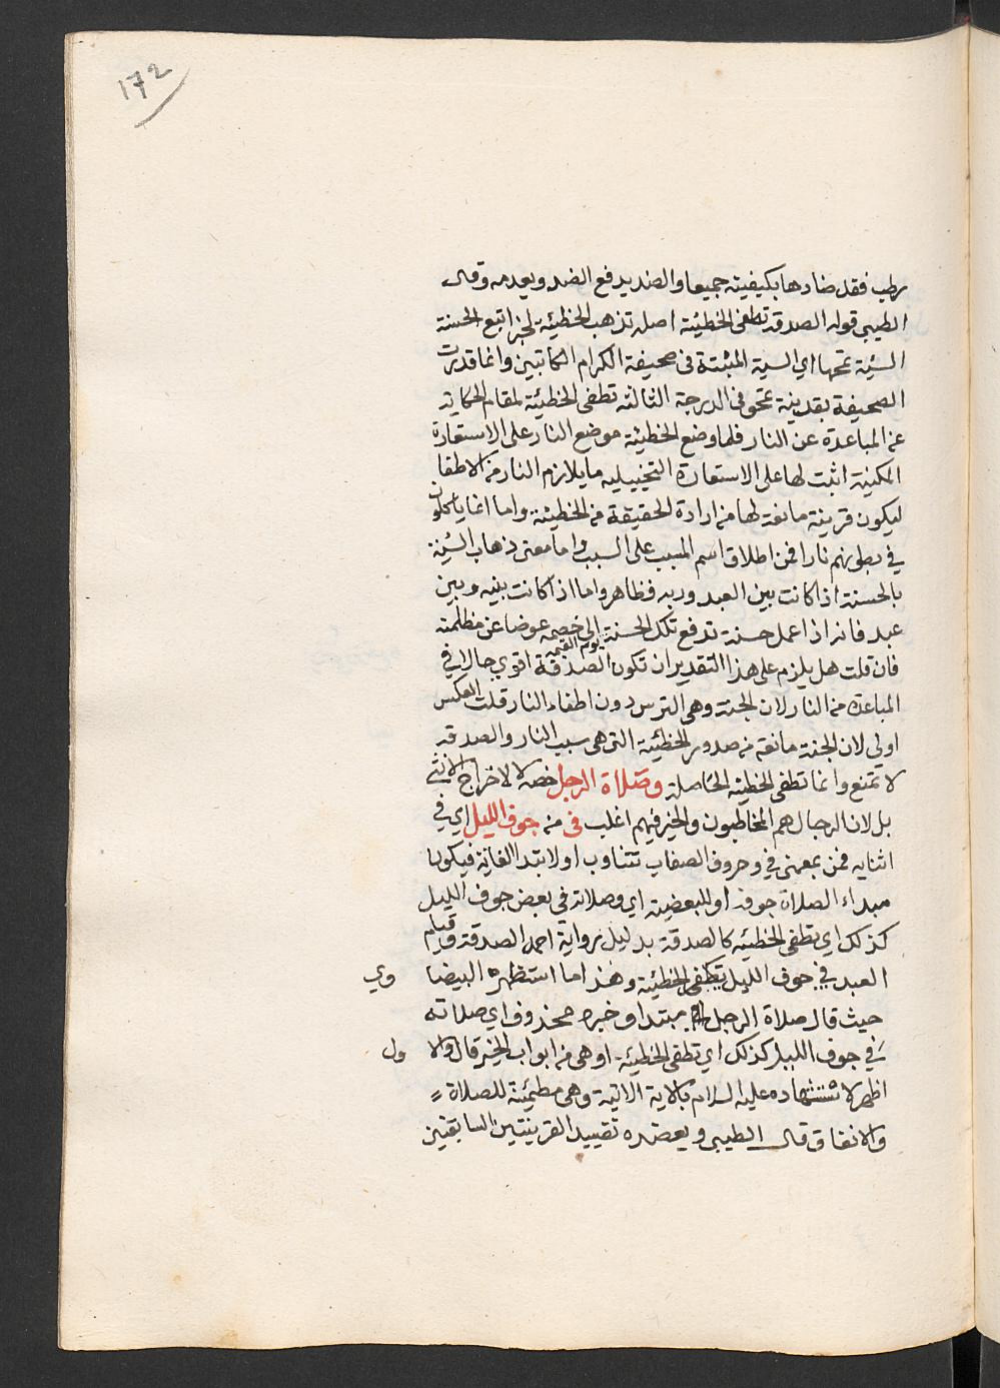 172
رطب فقد ضادها بكيفيته جميعا والضد يدفع الضد ويعدمه وقال
الطيبي قوله الصدقة تطفئ الخطيئة اصله تذهب الخطيئة لخبر اتبع الحسنة
السيئة تمحها اي السيئة المثبتة في صحيفة الكرام الكاتبين وانما قدرت
الصحيفة بقرينة تمحو في الدرجة الثالثة تطفئ الخطيئة لمقام الحكاية
عن المباعدة عن النار فلما وضع الخطيئة موضع النار على الاستعارة
المكنية اثبت لها على الاستعارة التخييلية ما يلازم النار من الاطفا
ليكون قرينة مانعة لها من ارادة الحقيقة من الخطيئة واما انما ياكلون
في بطونهم نارا فمن اطلاق اسم المسبب على السبب واما معنى ذهاب السيئة
بالحسنة اذا كانت بين العبد وربه فظاهر واما اذا كانت بينه وبين
عبد فانه اذا عمل حسنة تدفع تلك الحسنة الى خصمه يوم القيمة عوضا عن مظلمته
فان قلت هل يلزم على هذا التقدير ان تكون الصدقة اقوي حالا في
المباعدة من النار لان الجنة وهي الترس دون اطفاء النار قلت العكس
اولى لان الجنة مانعة من صدور الخطيئة التي هي سبب النار والصدقة
لا تمنع وانما تطفئ الخطيئة الحاصلة وصلاة الرجل خصه لا لاخراج الانثى
بل لان الرجال هم المخاطبون والخير فيهم اغلب في من جوف الليل اي في
اثنايه فمن بمعنى في وحروف الصفات تتناوب او لابتدا الغاية فيكون
مبداء الصلاة جوفه او للبعضية اي وصلاته في بعض جوف الليل
كذلك اي تطفئ الخطيئة كالصدقة بدليل رواية احمد الصدقة وقيام
العبد في جوف الليل تطفئ الخطيئة وهذا ما استظهره البيضاوي
حيث قال صلاة الرجل مبتدا وخبره محذوف اي صلاته
في جوف الليل كذلك اي تطفئ الخطيئة او هي من ابواب الخير قال والاول
اظهر لاستشهاده عليه السلام بالاية الاتية وهي متضمنة للصلاة
والانفاق قال الطيبي ويعضده تقييد القرينتين السابقتين